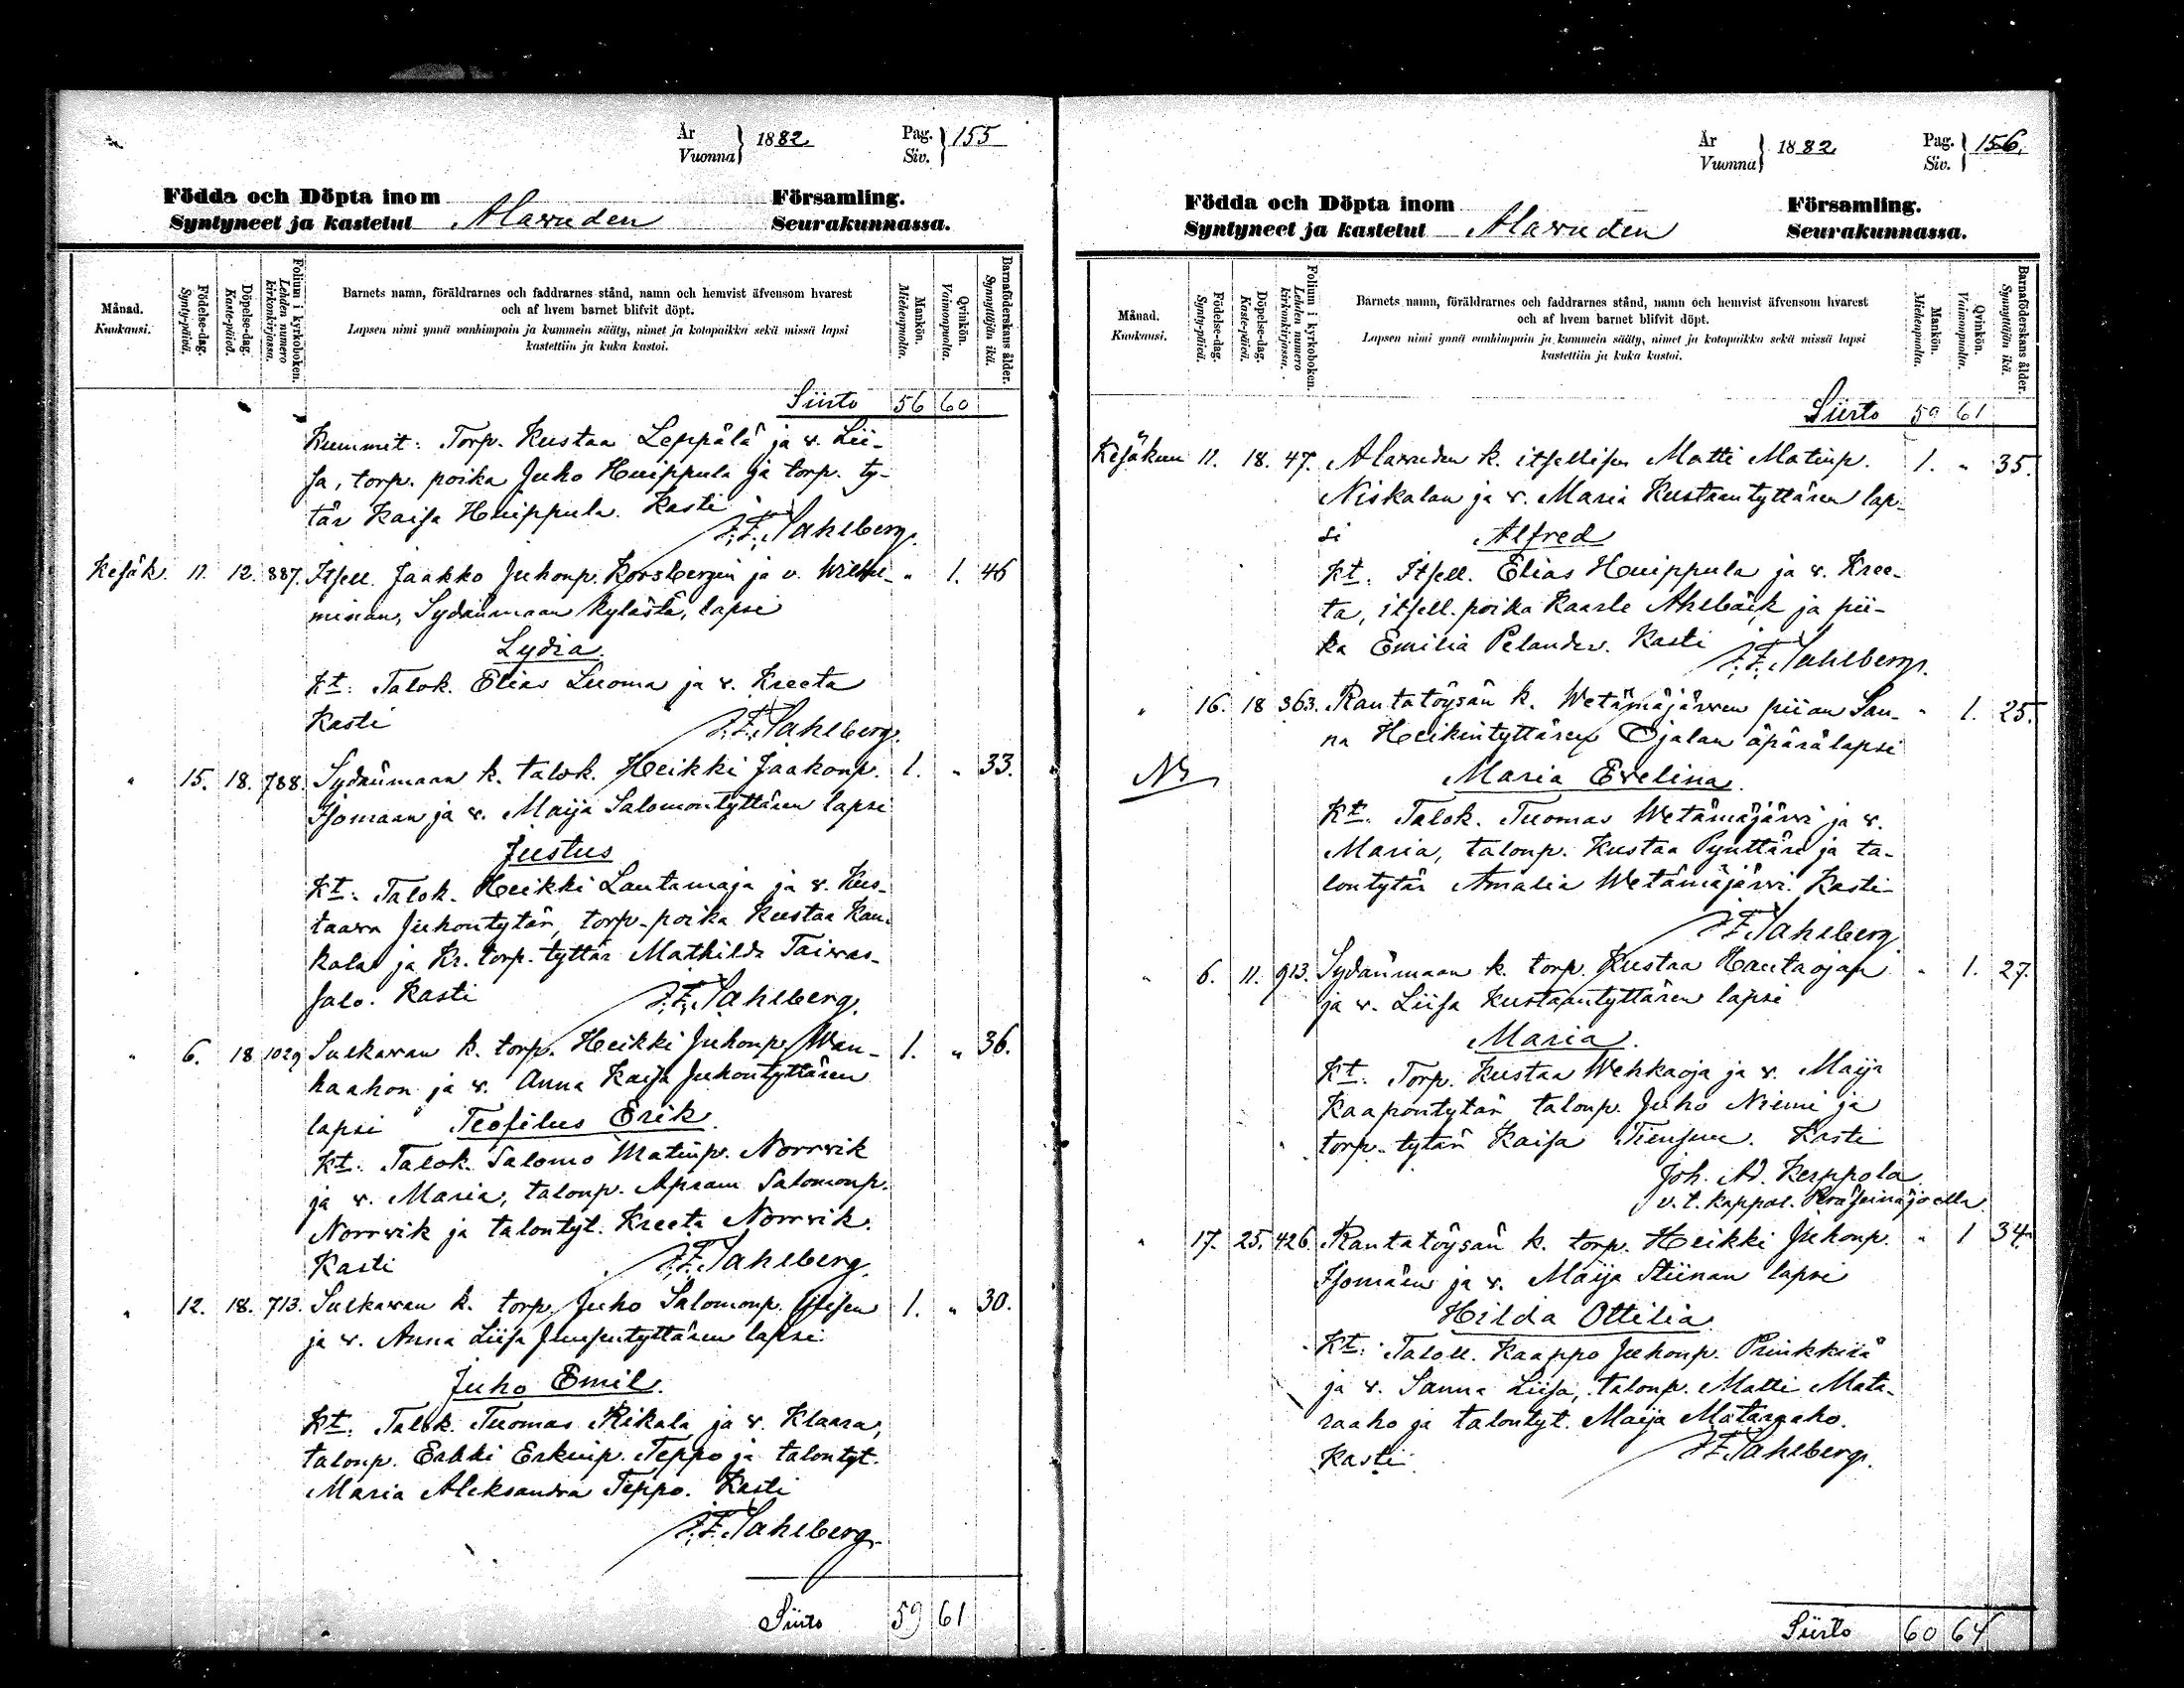 År
Vuonna
1882
Pag.
Siv.
155
Födda och Döpta inom Församling.
Syntyneet ja kastetut Alavuden Seurakunnassa.
Månad.
Kuukausi.
Födelse-dag.
Synty-päivä.
Döpelse-dag.
Kaste-päivä.
Folium i kyrkoboken.
Lehden numero
kirkonkirjassa.
Barnets namn, föräldrarnes och faddrarnes stånd, namn och hemvist äfvensom hvarest
och af hvem barnet blifvit döpt.
Lapsen nimi ynnä vanhimpain ja kummein sääty, nimet ja kotopaikka sekä missä lapsi
kastettiin ja kuka kastoi.
Mankön.
Miehenpuolta.
Qvinkön.
Vaimonpuolta.
Barnaföderskans ålder.
Synnyttäjän ikä.
Siirto 56 60
Kummit: Torp. Kustaa Leppälä ja v. Lii-
sa, torp. poika Juho Huippula ja torp. ty-
tär Kaisa Huippula. Kasti
J.F. Sahlberg.
Kesäk. 11. 12. 887. Itsell. Jaakko Juhonp. Korsbergin ja v. Wilhel- " 1. 46
minan, Sydänmaan kylästä, lapsi
Lydia.
Kt: Talok. Elias Luoma ja v. Kreeta
Kasti J.F. Sahlberg.
" 15. 18. 788. Sydänmaan k. talok. Heikki Jaakonp. 1. " 33.
Isomaan ja v. Maija Salomontyttären lapsi
Justus
Kt: Talok. Heikki Lautamaja ja v. Kus-
taava Juhontytär, torp. poika Kustaa Kau-
kola ja Kr. torp. tyttär Mathilda Taivas-
salo. Kasti J.F. Sahlberg.
" 6. 18 1029 Sulkavan k. torp. Heikki Juhonp. Wan- 1. " 36.
haahon ja v. Anna Kaisa Juhontyttären
lapsi Teofilus Erik.
Kt: Talok. Salomo Matinp. Norrvik
ja v. Maria, talonp. Apram Salomonp.
Norrvik ja talontyt. Kreeta Norrvik.
Kasti J.F. Sahlberg.
" 12. 18. 713. Sulkavan k. torp. Juho Salomonp. 1. " 30.
ja v. Anna Liisa lapsi
Juho Emil.
Kt: Talok. Tuomas Rikala ja v. Klaara,
talonp. Erkki Erkinp. Teppo ja talontyt.
Maria Aleksandra Teppo. Kasti
J.F. Sahlberg.
Siirto 59 61
År
Vuonna
1882
Pag.
Siv.
156.
Födda och Döpta inom Församling.
Syntyneet ja kastetut Alavuden Seurakunnassa.
Månad.
Kuukausi.
Födelse-dag.
Synty-päivä.
Döpelse-dag.
Kaste-päivä.
Folium i kyrkoboken.
Lehden numero
kirkonkirjassa.
Barnets namn, föräldrarnes och faddrarnes stånd, namn och hemvist äfvensom hvarest
och af hvem barnet blifvit döpt.
Lapsen nimi ynnä vanhimpain ja kummein sääty, nimet ja kotopaikka sekä missä lapsi
kastettiin ja kuka kastoi.
Mankön.
Miehenpuolta.
Qvinkön.
Vaimonpuolta.
Barnaföderskans ålder.
Synnyttäjän ikä.
Siirto 59 61
Kesäkuu 11. 18. 47. Alavuden k. itsellisen Matti Matinp. 1. " 35.
Niskalan ja v. Maria Kustaantyttären lap-
si Alfred
Kt: Itsell. Elias Huippula ja v. Kree-
ta, itsell. poika Kaarle Ahlbäck ja pii-
ka Emilia Pelander. Kasti
J.F. Sahlberg.
" 16. 18 363. Rantatöysän k. Wetämäjärven piian San- " 1. 25.
na Heikintyttären Ojalan äpärälapsi
NB Maria Evelina.
Kt: Talok. Tuomas Wetämäjärvi ja v.
Maria, talonp. Kustaa Pynttäri ja ta-
lontytär Amalia Wetämäjärvi. Kasti
J.F. Sahlberg
" 6. 11. 913. Sydänmaan k. torp. Kustaa Hautaojan " 1. 27.
ja v. Liisa Kustaantyttären lapsi
Maria.
Kt: Torp. Kustaa Wehkaoja ja v. Maija
Kaapontytär talonp. Juho Niemi ja
torp. tytär Kaisa Kasti
Joh. Ad. Kerppola.
v. t. kappal. Peräseinäjoella.
" 17. 25. 426. Rantatöysän k. torp. Heikki Juhonp. " 1 34.
Isomäen ja v. Maija Stiinan lapsi
Hilda Ottilia.
Kt: Taloll. Kaappo Juhonp. Prinkkilä
ja v. Sanna Liisa, talonp. Matti Mata-
raaho ja talontyt. Maija Mataraaho.
Kasti J.F. Sahlberg.
Siirto 60 64